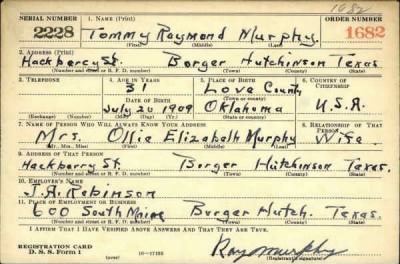 1682
SERIAL NUMBER 1. NAME (Print) ORDER NUMBER
2228 Tommy Raymond Murphy. 1682
(First) (Middle) (Last)
2. ADDRESS (Print)
Hackberry St. Borger Hutchinson Texas.
(Number and street or R. F. D. number) (Town) (County) (State)
3. TELEPHONE 4. AGE IN YEARS 5. PLACE OF BIRTH 6. COUNTRY OF CITIZENSHIP
31 Love County
DATE OF BIRTH (Town or county)
July 20 1909 Oklahoma U.S.A.
(Exchange) (Number) (Mo.) (Day) (Yr.) (State or country)
7. NAME OF PERSON WHO WILL ALWAYS KNOW YOUR ADDRESS 8. RELATIONSHIP OF THAT PERSON
Mrs. Ollie Elizabeth Murphy Wife.
(Mr., Mrs., Miss) (First) (Middle) (Last)
9. ADDRESS OF THAT PERSON
Hackberry St. Borger Hutchinson Texas.
(Number and street or R. F. D. number) (Town) (County) (State)
10. EMPLOYER'S NAME
J.A. Robinson
11. PLACE OF EMPLOYMENT OR BUSINESS
600 South Maine Borger Hutch. Texas.
(Number and street or R. F. D. number) (Town) (County) (State)
I AFFIRM THAT I HAVE VERIFIED ABOVE ANSWERS AND THAT THEY ARE TRUE.
REGISTRATION CARD
D. S. S. FORM 1 (over) 16-17105
Ray Murphy
(Registrant's signature)